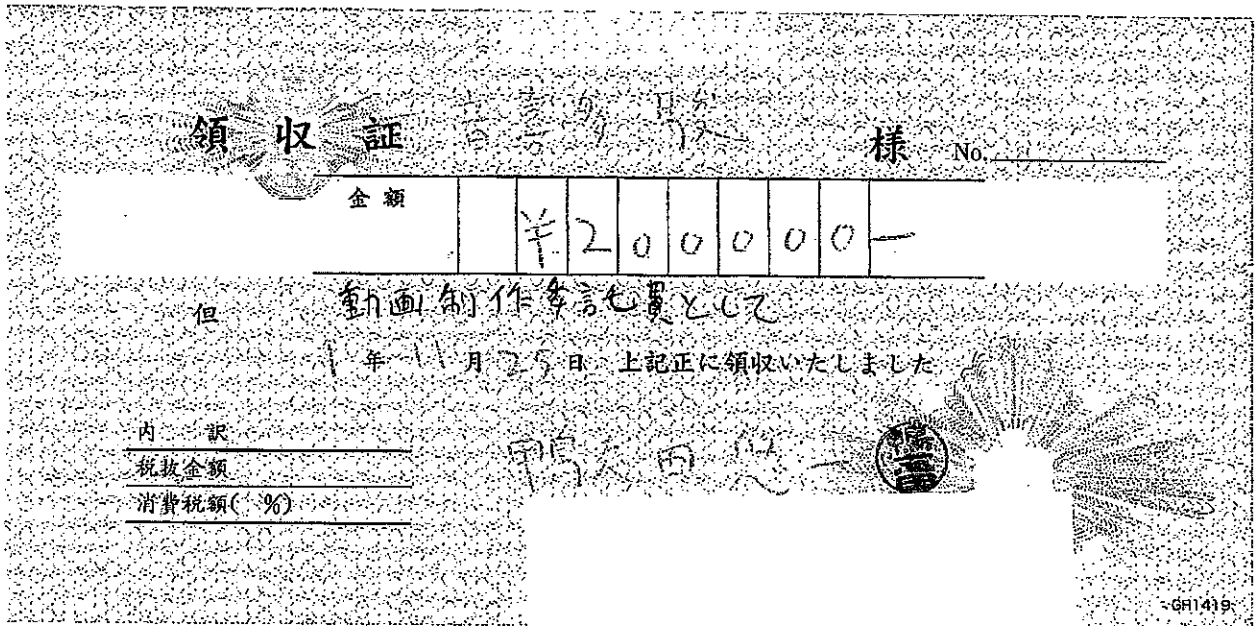 領収証 喜多 聡 様 No.
金額 ¥200000-
但 動画制作委託費として
1年11月25日 上記正に領収いたしました
内訳
税抜金額
消費税額( %)
鴨 田 悠一
GH1419